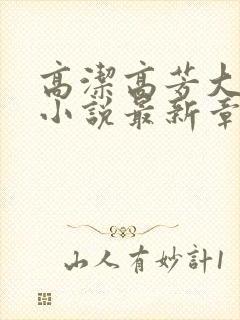 高潔高芳大
小說最新章
山人有妙計1